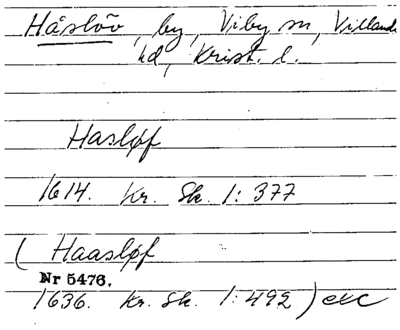 Håslöv, by, Viby sn, Villands
hd, Krist. l.
Hasløf
1614. Kr. Sk. 1: 377
( Haasløf
Nr 5476.
1636. Kr. Sk. 1: 492 ) exc